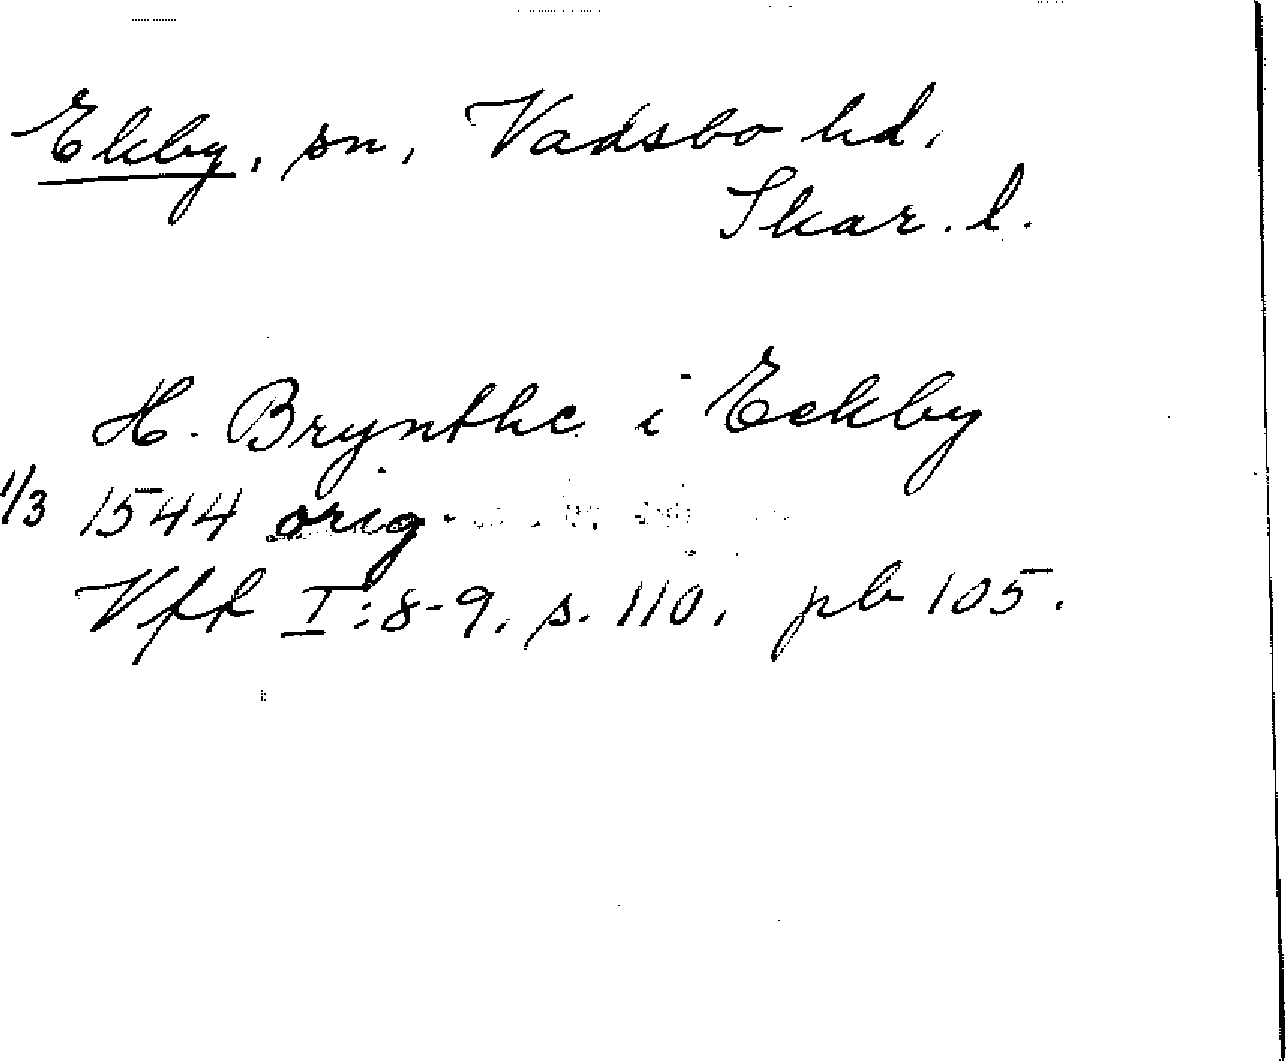 Ekby, sn, Vadsbo hd,
Skar. l.
H. Brynthe i Eekby
1/3 1544 orig.
Vff I:8-9, s. 110, pb 105.